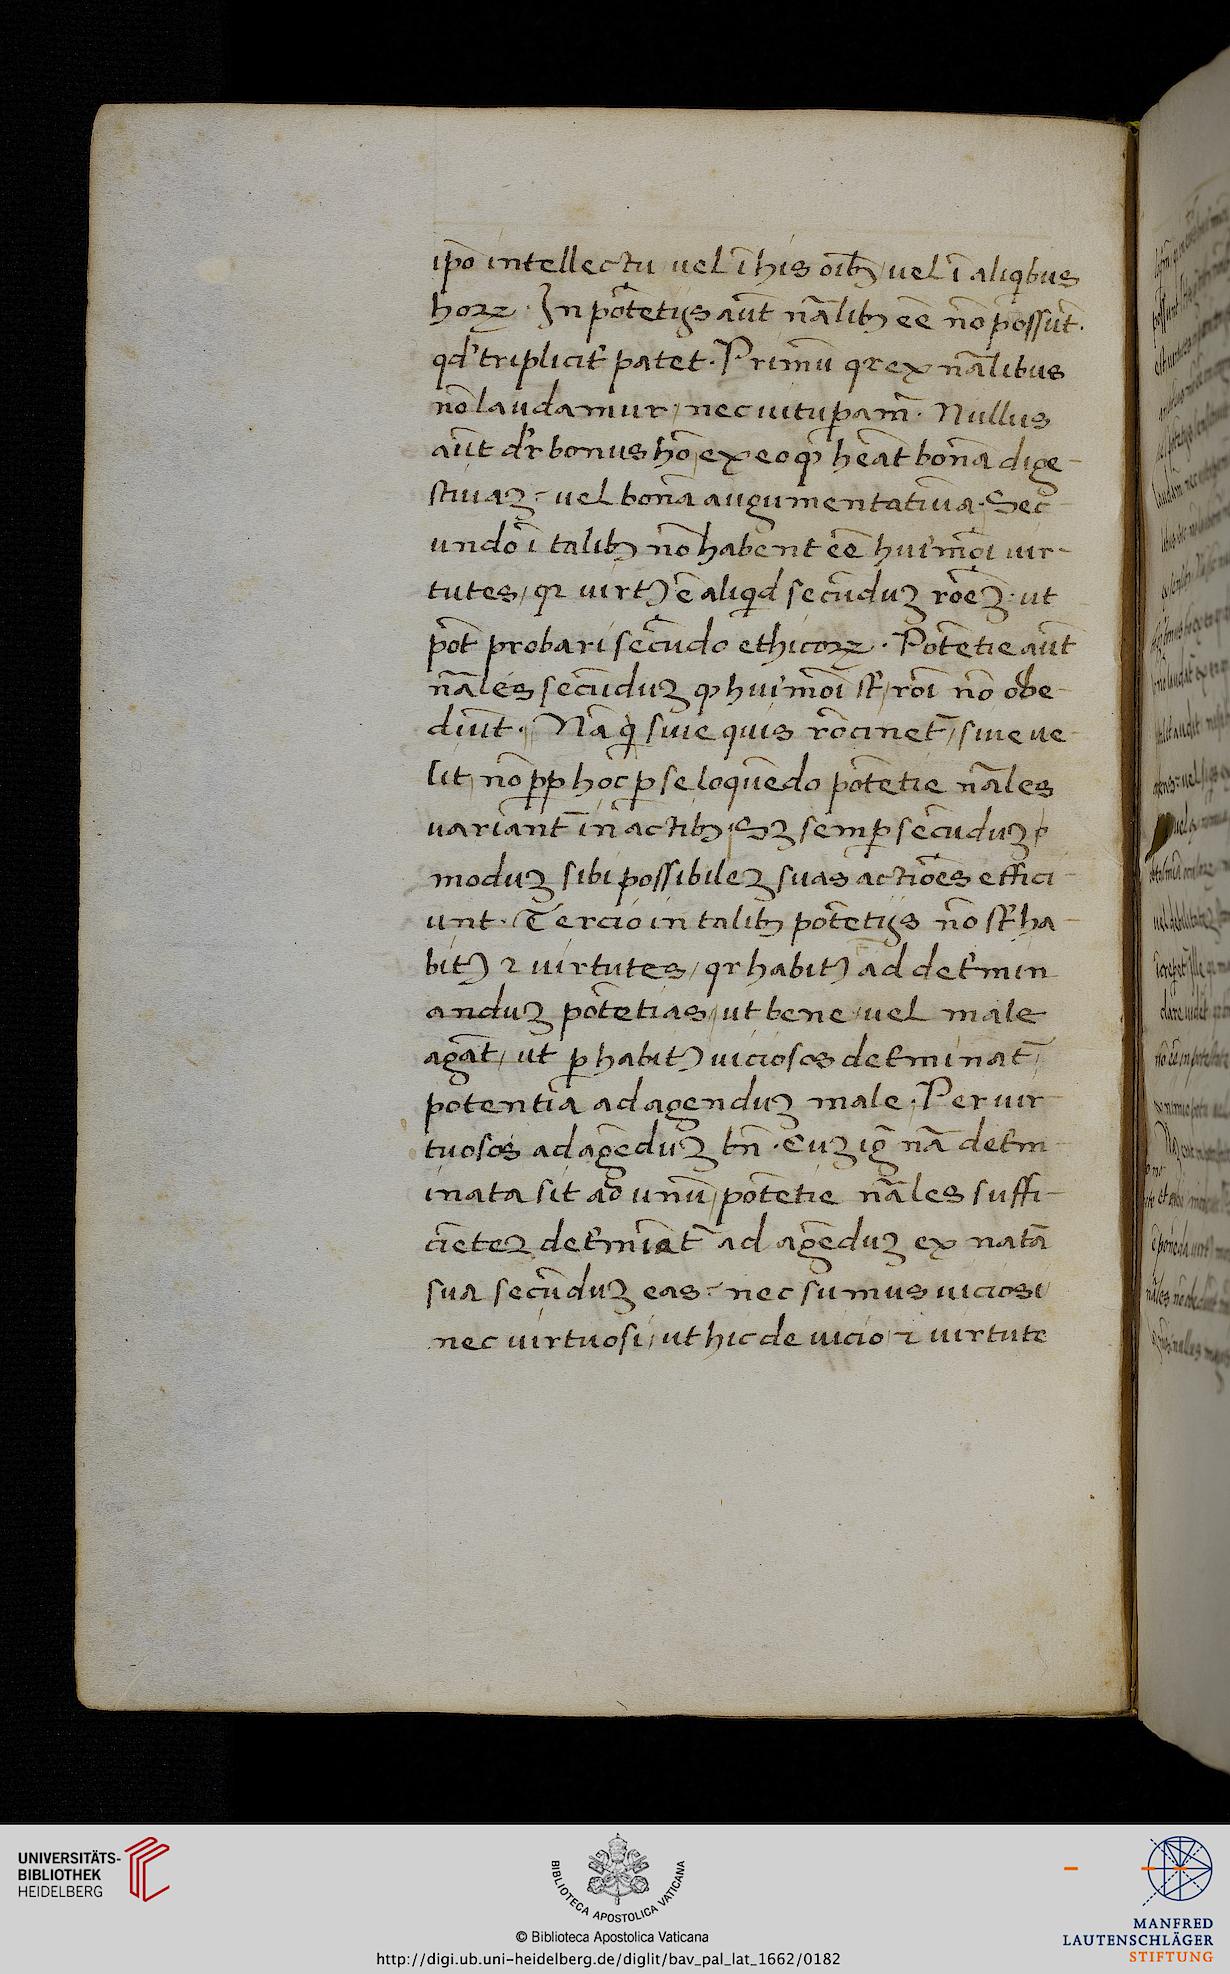 ip̄o intellectu uel ī his oīb; uel ī aliqibus
hoꝝ · In pōtētijs aūt nālib; eē nō possūt ·
qd' triplicit̄ patet · Primū qꝛ ex nālibus
nō laudamur, nec uitup̄am̄ · Nullus
aūt dr̄ bonus hō, ex eo qꝙ hēat bonā dige-
stiuaꝫ: uel bonā augumentatiuā · Sec-
undo ī talib; nō habent eē hui'mōi uir-
tutes, qꝛ uirtꝰ ē aliqd secūduꝫ rōeꝫ · ut
pōt probari secūdo ethicoꝝ · Pōtētie aūt
nāles secūduꝫ qꝙ hui'mōi st̄, rōi nō obe-
diūt · Nā qꝙ siue quis rōcinet̄, siue ue-
lit, nō ꝓp hoc ꝑ se loquēdo pōtētie nāles
uariant̄ in actib; Sꝫ semꝑ secūduꝫ
moduꝫ sibi possibileꝫ suas actiōes effici-
unt · Tercio in talib; pōtētijs nō st̄ ha-
bitꝰ ⁊ uirtutes, qꝛ habitꝰ ad det̄min
anduꝫ pōtētias, ut bene uel male
agāt, ut ꝑ habitꝰ uiciosos det̄minat̄,
potentia ad agenduꝫ male · Per uir-
tuosos ad agēduꝫ bn̄ · Cuꝫ igr̄ nā det̄m-
inata sit ad unū, pōtētie nāles suffi-
ciēteꝝ det̄miāt̄ ad agēduꝫ ex natā
sua secūduꝫ eas: nec sumus uiciosi
nec uirtuosi, ut hic de uicio, ⁊ uirtute
UNIVERSITÄTS-
BIBLIOTHEK
HEIDELBERG
BIBLIOTECA APOSTOLICA VATICANA
© Biblioteca Apostolica Vaticana
http://digi.ub.uni-heidelberg.de/diglit/bav_pal_lat_1662/0182
MANFRED
LAUTENSCHLÄGER
STIFTUNG